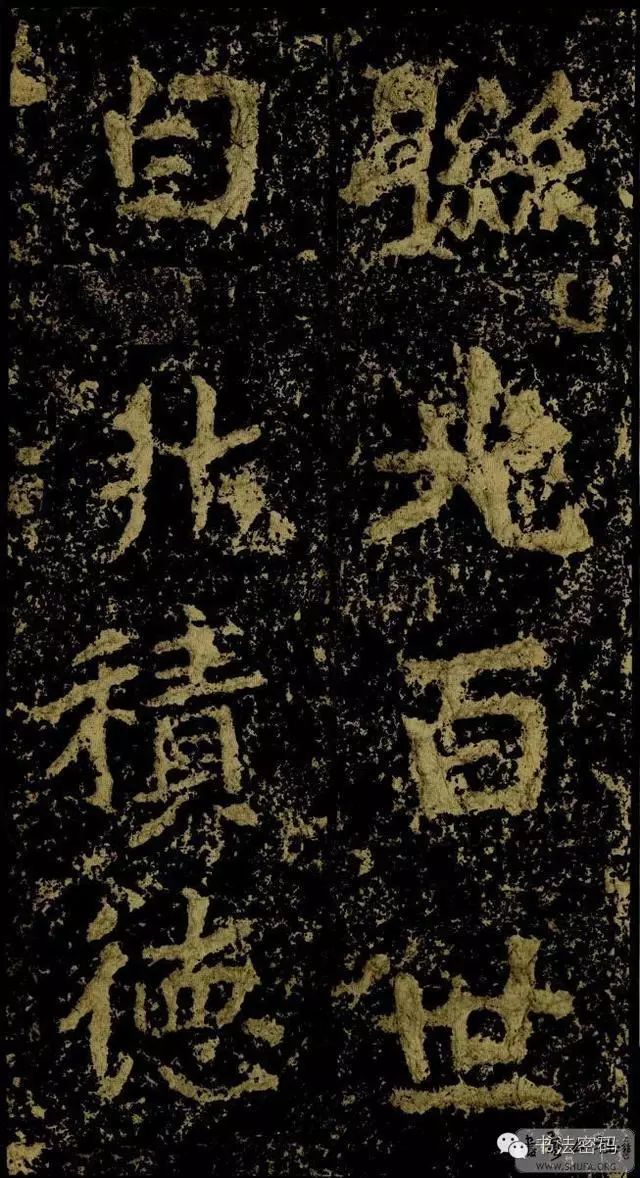 聯光百世
自非積德
书法密码
WWW.SHUFA.ORG